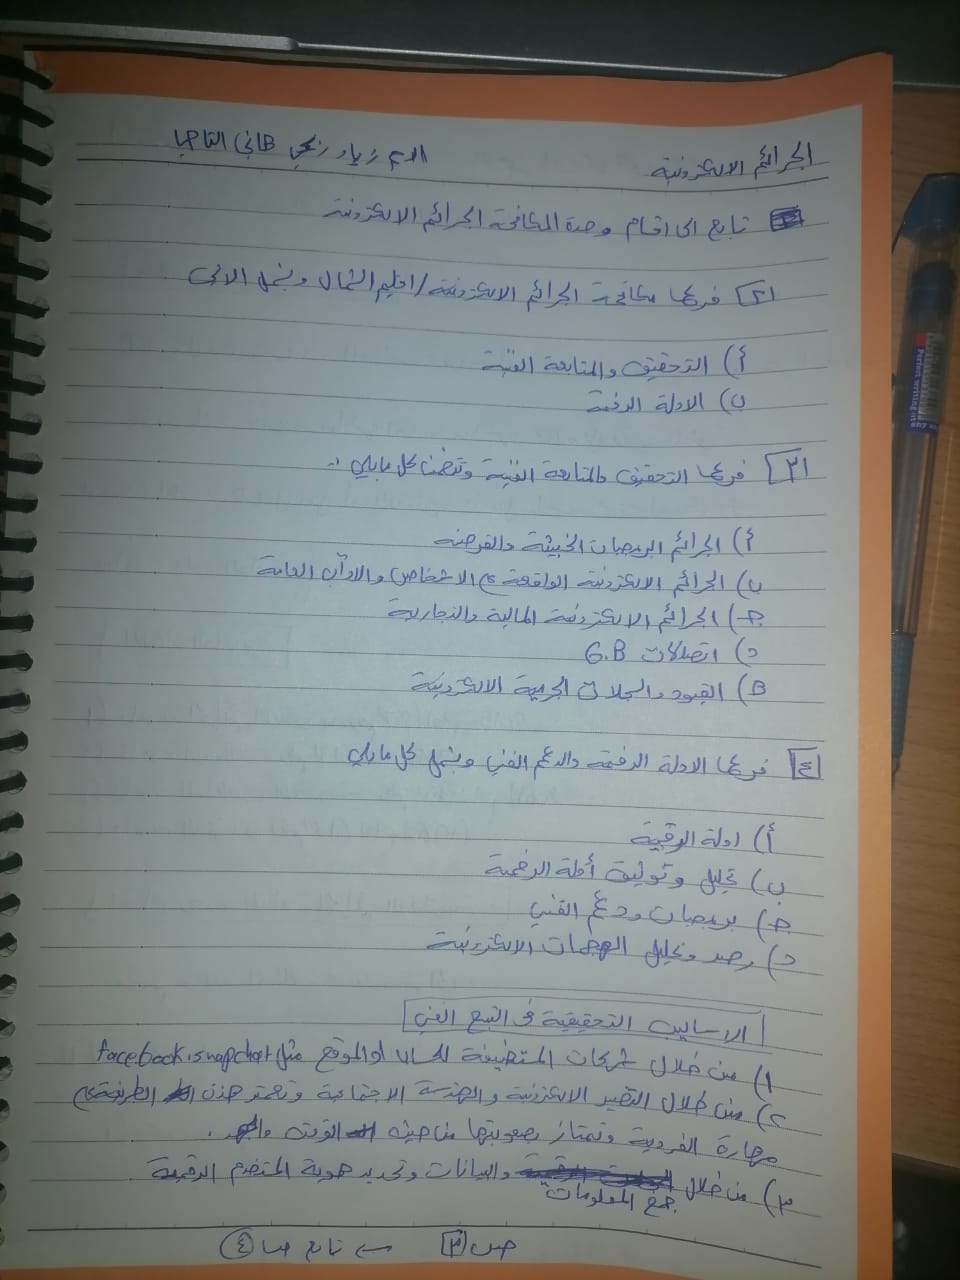 الجرائم الالكترونية
الاسم زياد زكي هاني
تابع الى اقسام وحدة المكافحة الجرائم الالكترونية
٢) فرعها مكافحة الجرائم الالكترونية / اقليم الشمال ويشمل الاتي
أ) التحقيق والمتابعة الفنية
ب) الادلة الرقمية
٣) فرعها التحقيق والمتابعة الفنية وتتضمن كل مايلي :-
أ) الجرائم البرمجيات الخبيثة والقرصنه
ب) الجرائم الالكترونية الواقعة على الاشخاص والاداب العامة
ج) الجرائم الالكترونية المالية والتجارية
د) اتصالات G.B
ه) القيود والسجلات الجرمية الالكترونية
٤) فرعها الادلة الرقمية والدعم الفني ويشمل كل مايلي
أ) ادلة الرقمية
ب) تحليل وتوثيق أدلة الرقمية
ج) برمجيات ودعم الفني
د) رصد وتحليل الهجمات الالكترونية
الاساليب التحقيقية في التتبع الفني
١) من خلال شركات المستضيفة للحساب او الموقع مثل facebook، snapchat
٢) من خلال التصيد الالكترونية والهندسة الاجتماعية وتعتمد هذه الطريقة على
مهارة الفردية وتمتاز بصعوبتها من حيث الوقت والجهد .
٣) من خلال جمع المعلومات والبيانات وتحديد هوية المستخدم الرقمية
ص ٣ ← تابع ص ٤
Perfect writing
any